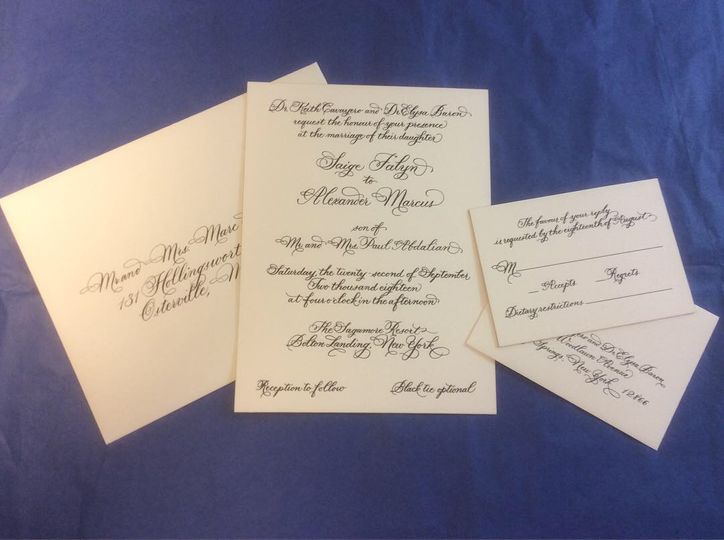 Mr. and Mrs. Marc
131 Hollingswort
Osterville, M
Dr. Keith Cavayero and Dr. Elysa Baron
request the honour of your presence
at the marriage of their daughter
Saige Falyn
to
Alexander Marcus
son of
Mr. and Mrs. Paul Abdalian
Saturday, the twenty-second of September
Two thousand eighteen
at four o'clock in the afternoon
The Sagamore Resort
Bolton Landing, New York
Reception to follow
Black tie optional
The favour of your reply
is requested by the eighteenth of August
M
Accepts Regrets
Dietary restrictions
and Dr. Elysa Baron
Woodlawn Avenue
Springs, New York
12866